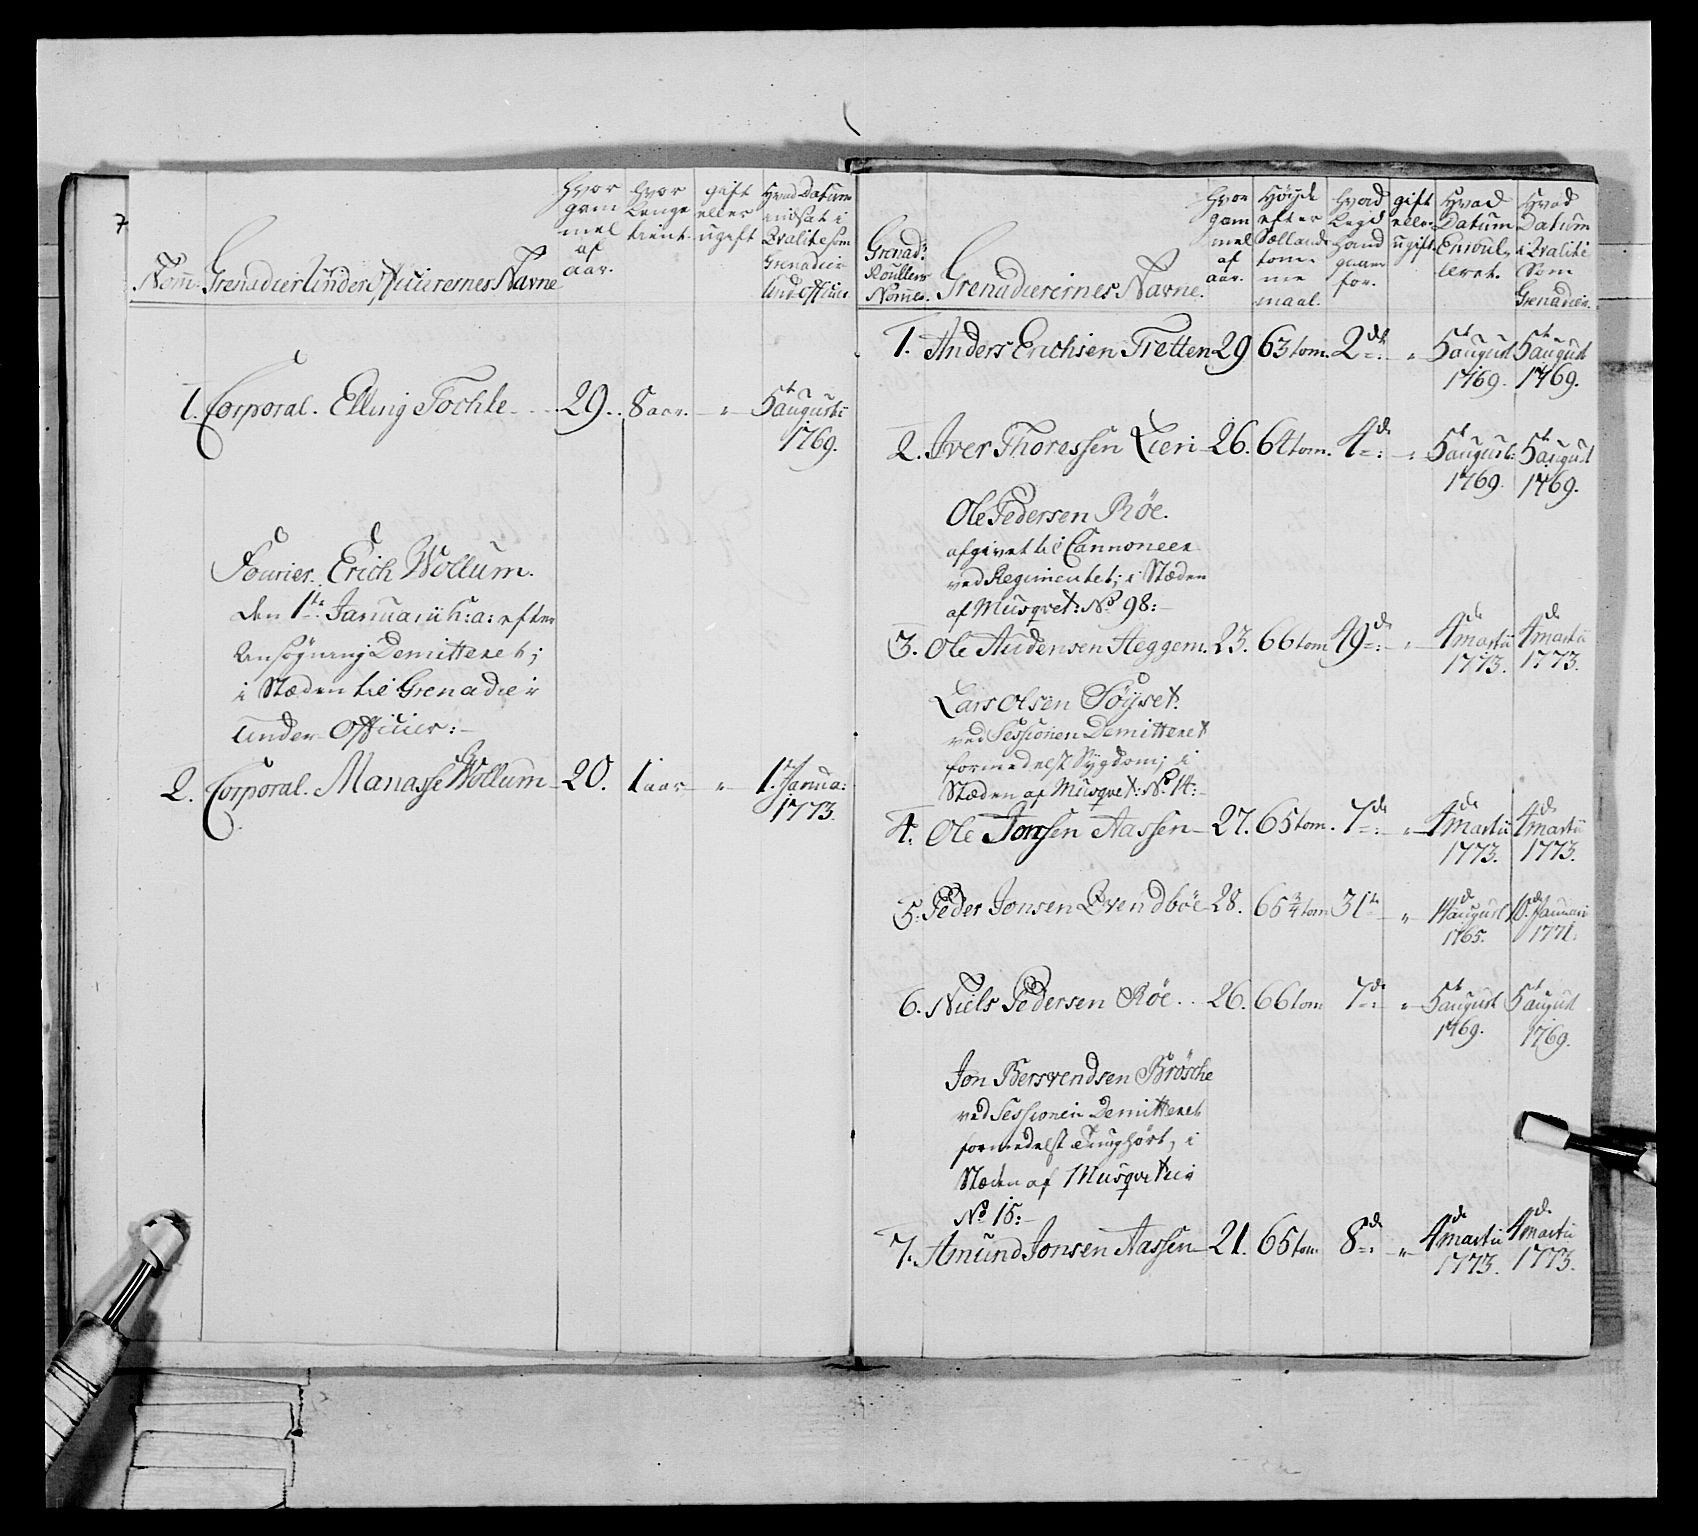 7
Nom. Grenadier Under Officierernes Navne
Hvor gammel af aar.
Hvor Lenge tient.
gift eller ugift
Hvad Datum indsat i Qvalite som Grenadier Und: Officier.
1. Corporal. Elling Tochle 29. 8 aar. " 5te augusti 1769.
Fourier. Erich Wollum.
den 1te Januarii h: a: efter
Ansøgning Demitteret;
i Stæden til Grenadier
under Officier:
2. Corporal. Manasse Wollum 20. 1 aar " 1. Janua: 1773.
Grenad: Roullens Nome.
Grenadierernes Navne.
Hvor gammel af aar.
Høyde efter Sællands tomme maal.
Hvad Legd Hand gaaer for.
gift eller ugift
Hvad Datum Enroulleret.
Hvad Datum i Qvalite Som Grenadier.
1. Anders Erichsen Tretten 29 63 tom. 2de " 5te august 1769. 5te august 1769.
2. Iver Thoressen Lien 26. 64 tom. 4de " 5te august: 1769. 5te august 1769.
Ole Pedersen Røe.
afgivet til Cannoneer
ved Regimentet; i Stæden
af Musqvet: No 98:
3. Ole Andersen Heggem. 23. 66 tom 49de " 4de martii 1773. 4de martii 1773.
Lars Olsen Søyset.
ved Sessionen Demitteret
formedelst Sygdom; i
Stæden af Musqvet: No. 14:
4. Ole Jonsen Aassen 27. 65 tom. 7de " 4de Martii 1773. 4de martii 1773.
5. Peder Jonsen Qvendbøe 28. 65 3/4 tom 31te " 14de august 1765. 10de Januari 1771.
6. Niels Pedersen Røe 26. 66 tom 7de " 5te august 1769. 5te august 1769.
Jon Bersvendsen Brøsche
ved Sessionen Demitteret
formedelst Tunghørt, i
Stæden af Musqvetier
No 15:
7. Amund Jonsen Aassen 21. 65 tom 8de " 4de martii 1773. 4de martii 1773.